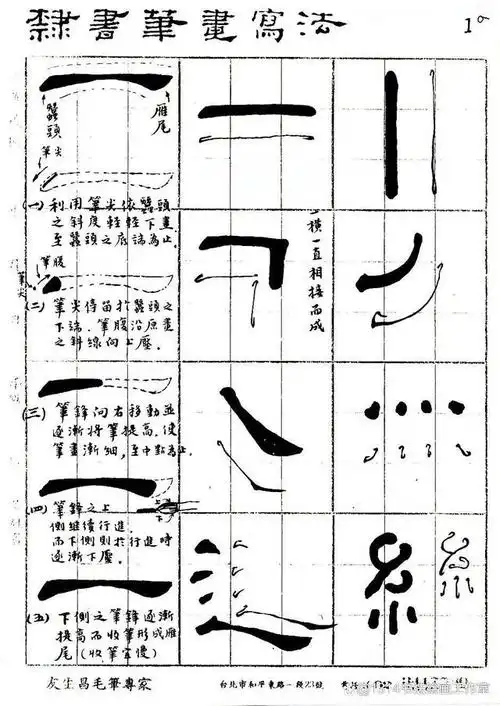 隸書筆畫寫法
1
蠶頭
雁尾
筆尖
(一) 利用筆尖依蠶頭
之斜度輕輕下畫
至蠶頭之底端為止
筆腹
筆尖
(二) 筆尖停留於蠶頭之
下端．筆腹沿原畫
之斜線向上壓．
(三) 筆鋒向右移動並
逐漸將筆提高，使
筆畫漸細，至中點為止．
(四) 筆鋒之上
側繼續行進．
而下側則於行進時
逐漸下壓．
(五) 下側之筆鋒逐漸
提高而收筆形成雁
尾（收筆宜慢）
橫一直相接而成
友生昌毛筆專家
台北市和平東路一段23號